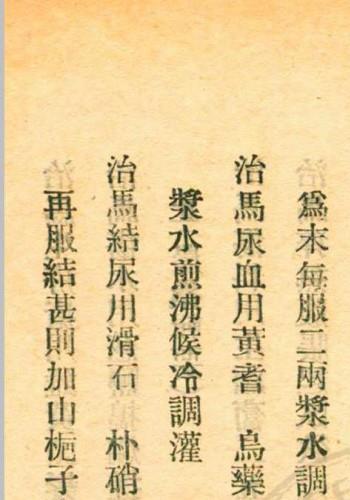 爲末每服二兩漿水調
治馬尿血用黃耆 烏藥
漿水煎沸候冷調灌
治馬結尿用滑石 朴硝
再服結甚則加山梔子